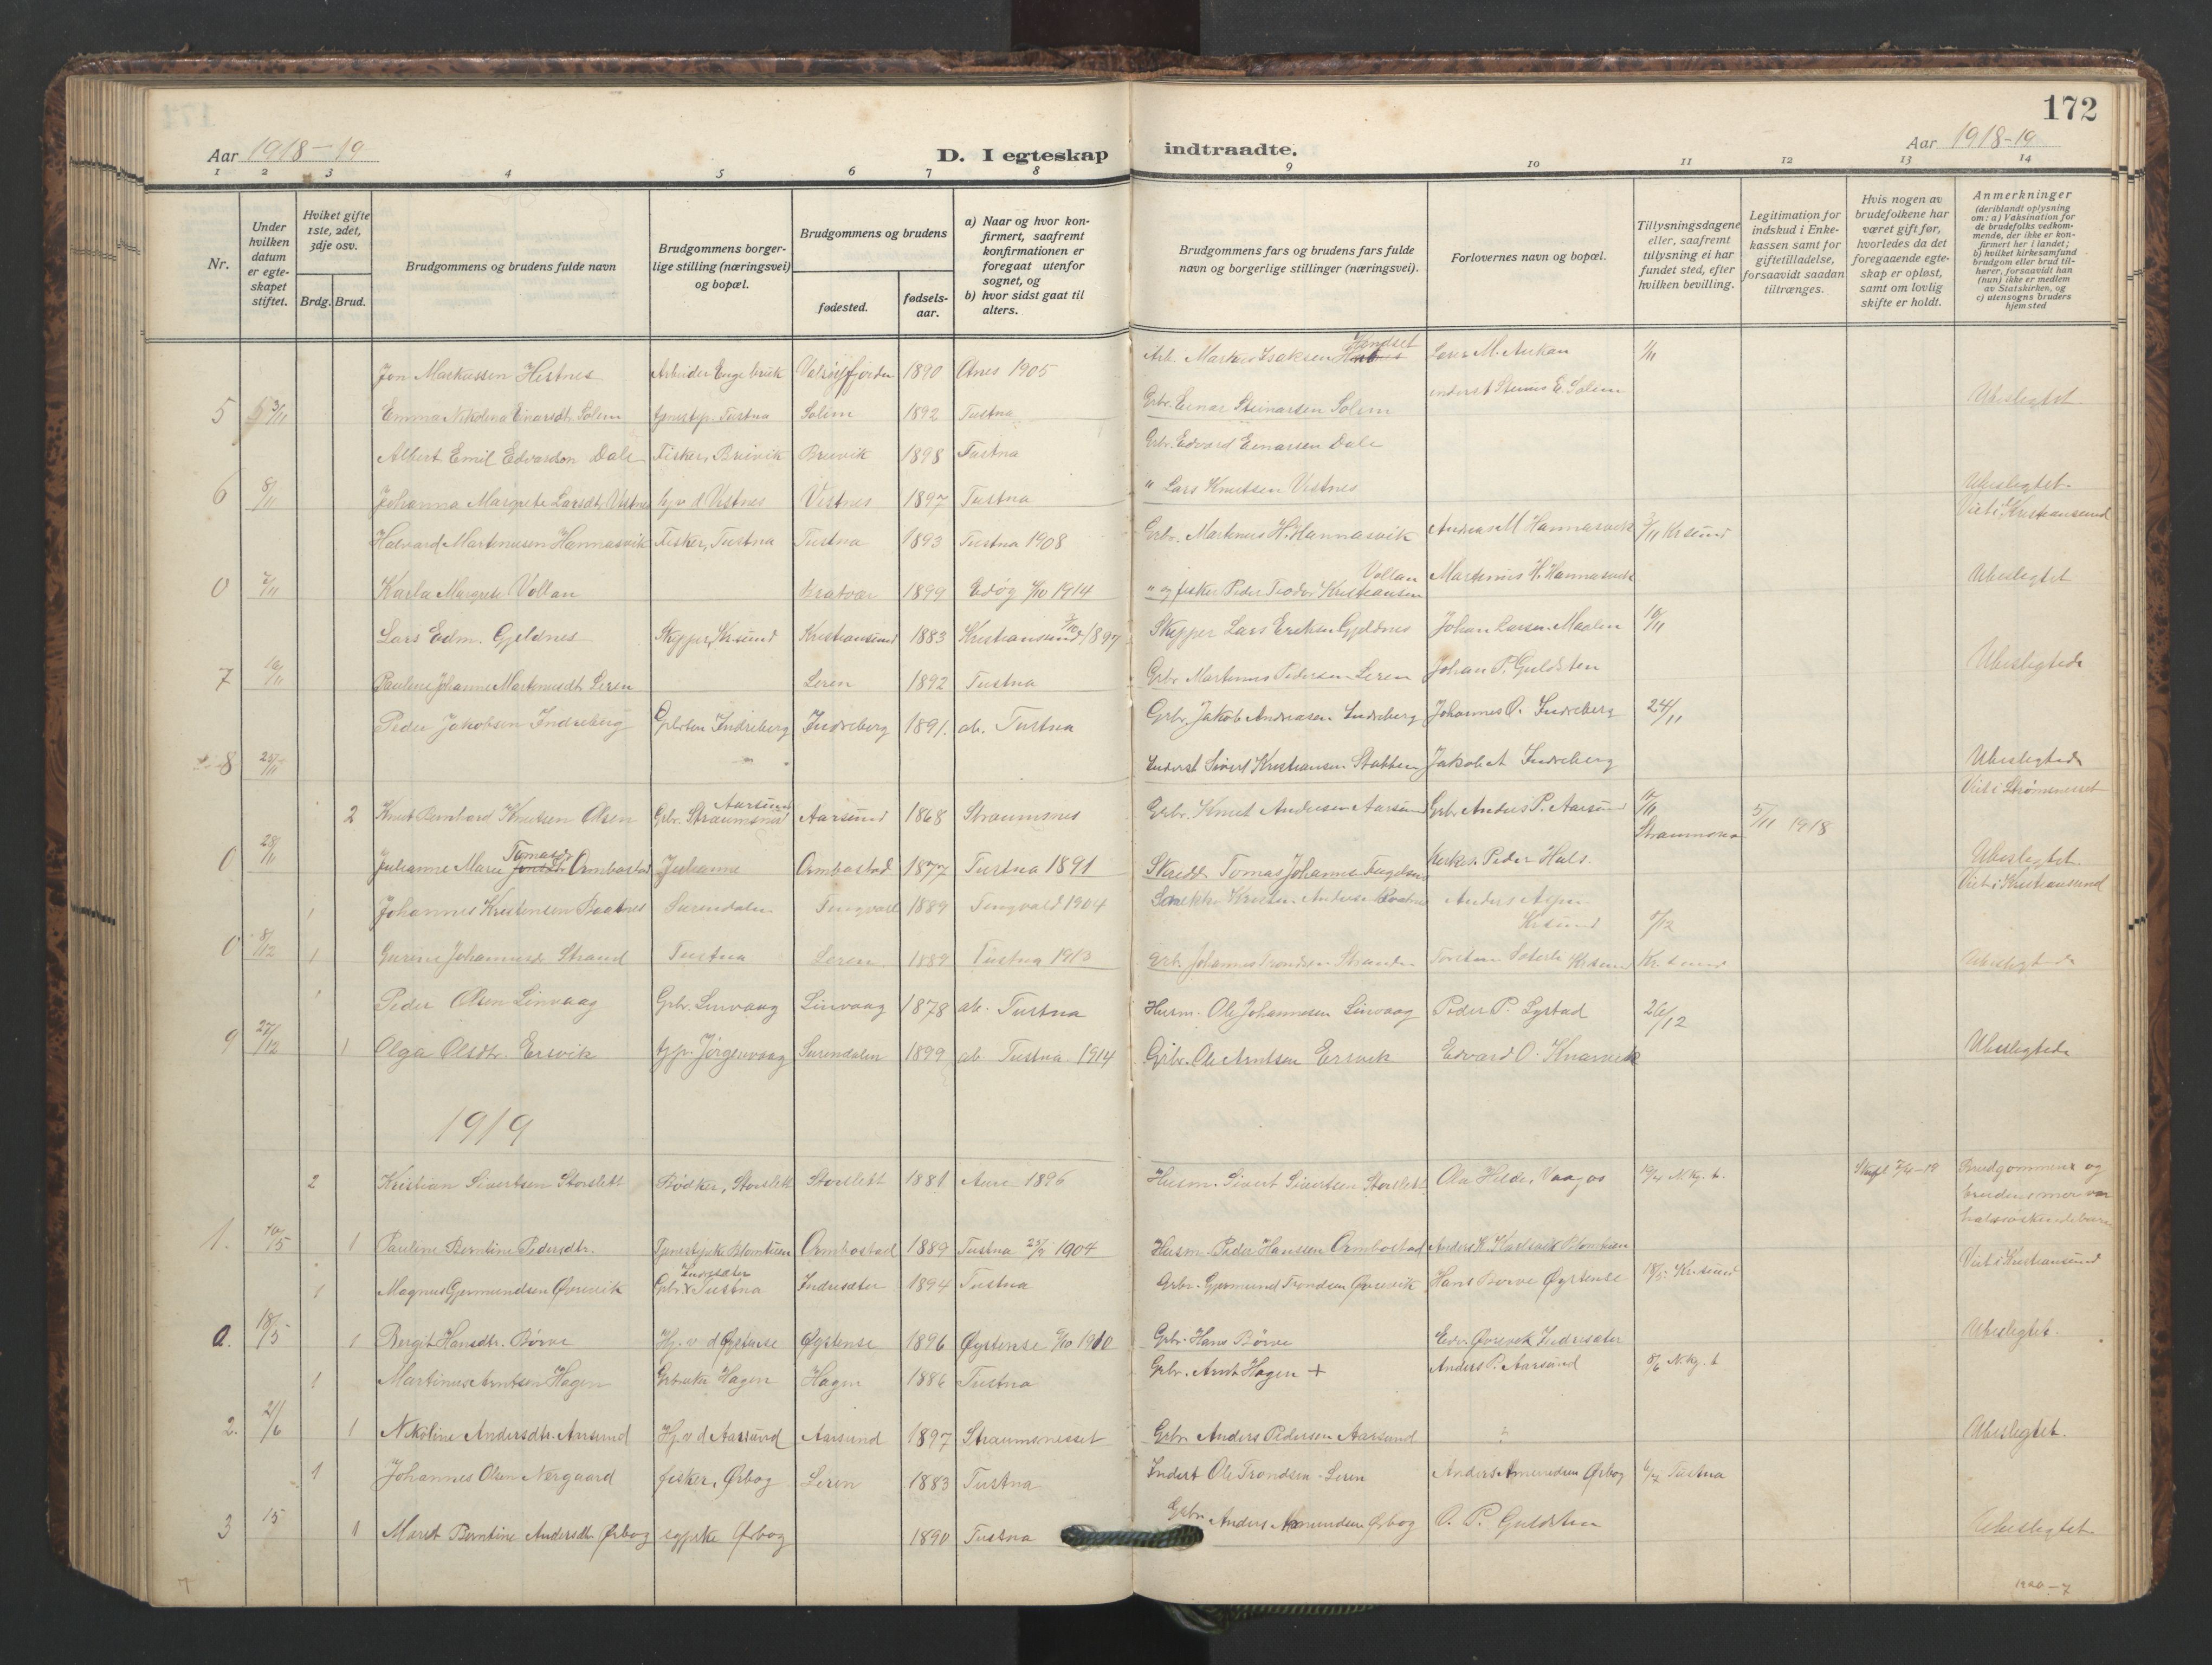 172
Aar 1918-19
D. I egteskap indtraadte.
Aar 1918-19
1 2 3 4 5 6 7 8 9 10 11 12 13 14
Nr.
Under hvilken datum er egteskapet stiftet.
Hviket gifte 1ste, 2det, 3dje osv.
Brdg. Brud.
Brudgommens og brudens fulde navn
Brudgommens borgerlige stilling (næringsvei) og bopæl.
Brudgommens og brudens
fødested.
fødselsaar.
a) Naar og hvor konfirmert, saafremt konfirmationen er foregaat utenfor sognet, og
b) hvor sidst gaat til alters.
Brudgommens fars og brudens fars fulde navn og borgerlige stillinger (næringsvei).
Forlovernes navn og bopæl.
Tillysningsdagene eller, saafremt tillysning ei har fundet sted, efter hvilken bevilling.
Legitimation for indskud i Enkekassen samt for giftetilladelse, forsaavidt saadan tiltrænges.
Hvis nogen av brudefolkene har været gift før, hvorledes da det foregaaende egteskap er opløst, samt om lovlig skifte er holdt.
Anmerkninger (deriblandt oplysning om: a) Vaksination for de brudefolks vedkommende, der ikke er konfirmert her i landet; b) hvilket kirkesamfund brudgom eller brud tilhører, forsaavidt han (hun) ikke er medlem av Statskirken, og c) utensogns bruders hjemsted
Jon Markussen Hestnes Arbeider Enge bruk Valsøyfjorden 1890 Aures 1905 Arb. Markus Isaksen Lasse M. Aukan 1/11
5 3/11 Emma Nikolena Einarsdt. Solem tjenestep. Tustna Solem 1892 Tustna Grbr. Einar Steinarsen Solem inderst Steinar E. Solem Ubeslegtet
Albert Emil Edvardson Dale Fisker, Breivik Breivik 1898 Tustna Grbr. Edvard Einarsen Dale
6 8/11 Johanna Margrete Larsdt. Vistnes hj. v d Vistnes Vistnes 1897 Tustna " Lars Knutsen Vistnes Ubeslegtet.
Halvard Martinusen Hannasvik Fisker, Tustna Tustna 1893 Tustna 1908 Grbr. Martinus H. Hannasvik Andreas M Hannasvik 3/11 Kr.sund Viet i Kristiansund
0 7/11 Karla Margrete Vollan Bratvær 1899 Edøy 4/10 1914 " og fisker Peder Teodor Kristiansen Vollan Martinus H. Hannasvik Ubeslegtet
Lars Edm. Gjeldnes Skipper, Kr.sund Kristiansund 1883 Kristiansund 1897 Skipper Lars Eriksen Gjeldnes Johan Larsen Maalen 10/11
7 10/11 Pauline Johanne Martinusdt. Leren Leren 1892 Tustna Grbr Martinus Pedersen Leren Johan P. Guldsten Ubeslegtede
Peder Jakobsen Indreberg Grbrsen Indreberg Indreberg 1891. ab. Tustna Grbr. Jakob Andreasen Indreberg Johannes O. Indreberg 24/11
8 25/11 Inderst Sivert Kristiansen Stabben Jakob A Indreberg Ubeslegtede
2 Knut Bernhard Knutsen Olsen Grbr. Straumsnes Aarsund Aarsund 1868 Straumsnes Grbr. Knut Andersen Aarsund Grbr Anders P. Aarsund 10/11 Straumsnes 5/11 1918 Viet i Strømsnesset
0 28/11 Julianne Marie Tomasdt. Ormbostad Ormbostad 1877 Tustna 1891 Skredd. Tomas Johannes Kirkes. Peder Hals. Ubeslegtet.
1 Johannes Kristensen Baatnes Surendalen Tingvoll 1889 Tingvold 1904 Snekker Kristen Andersen Anders Aspen Kr.sund 8/12 Viet i Kristiansund
0 8/12 1 Gurine Johannesdt Strand Tustna Leren 1889 Tustna 1913 Grbr. Johannes Trondsen Stranden Torstein Sæterli Kr.sund Kr.sund Ubeslegtede
1 Peder Olsen Linvaag Grbr. Linvaag Linvaag 1878 ab. Tustna Husm. Ole Johannesen Linvaag Peder P. Lystad 26/12
9 27/12 1 Olga Olsdtr. Ersvik tjp. Jørgenvaag Surendalen 1899 ab. Tustna 1914 Grbr. Ole Arntsen Ersvik Edvard O. Knarvik Ubeslegtede
1919
2 Kristian Sivertsen Storslett Bødker, Storslett Storslett 1881 Aure 1896 Husm. Sivert Sivertsen Storslett Ola Helde, Vaagos 19/4 N.kg.t. Brudgommens og brudens mor var halvsøskendebarn
1. 10/5 1 Pauline Berntine Pedersdtr. Tjenestpike Blomtuen Ormbostad 1889 Tustna 25/9 1904 Husm. Peder Hanssen Ormbostad Anders K. Karlsvik Blomtuen
1 Magnus Gjermundsen Øvrevik Grbr. Indresæter Tustna Indresæter 1894 Tustna Grbr. Gjermund Trondsen Øvrevik Hans Børve Øystense 18/5 Kr.sund Viet i Kristiansund
0. 18/5 1 Bergit Hansdtr. Børve Hj. v d Øystense Øystense 1896 Øystense 9/10 1910 Grbr. Hans Børve Edv. Øvrevik Indresæter Ubeslegtet.
1 Martinus Arntsen Hagen Grbruker Hagen Hagen 1886 Tustna Grbr. Arnt Hagen + Anders P. Aarsund 8/6 N.kg.t
2. 21/6 1 Nikoline Andersdtr. Aarsund Hj. v d Aarsund Aarsund 1897 Straumsnesset Grbr. Anders Pedersen Aarsund ? Ubeslegtet.
1 Johannes Olsen Nergaard fisker, Ørbog Leren 1883 Tustna Indert Ole Trondsen Leren Anders Amundsen Ørbog 6/7 Tustna
3 15 1 Marit Berntine Andersdtr Ørbog Ørbog 1890 Tustna Grbr. Anders Amundsen Ørbog O. P. Guldsten Ubeslegtet
7